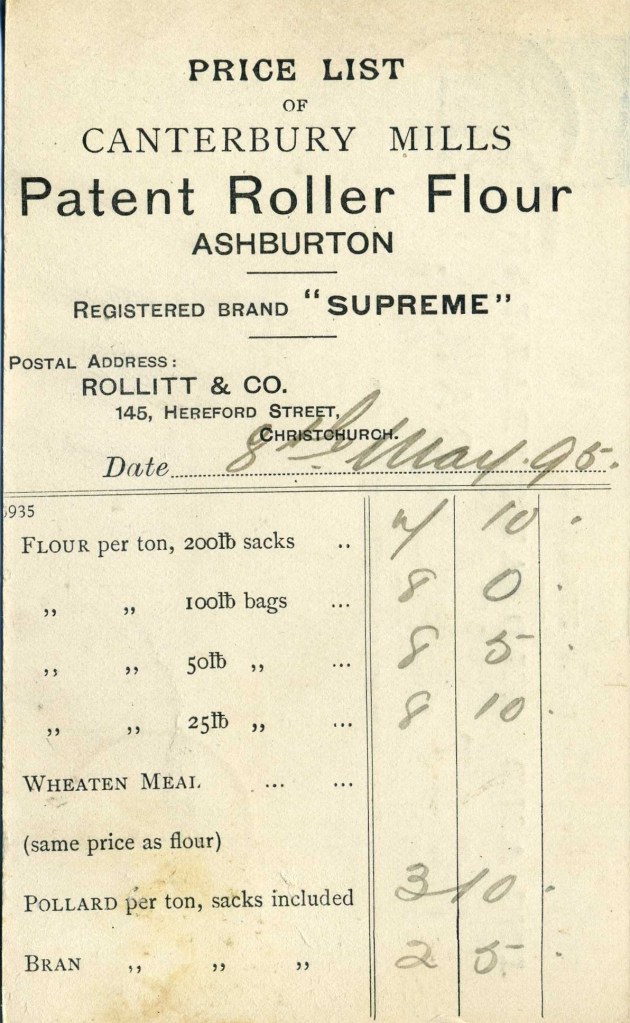 PRICE LIST
OF
CANTERBURY MILLS
Patent Roller Flour
ASHBURTON
REGISTERED BRAND "SUPREME"
POSTAL ADDRESS:
ROLLITT & CO.
145, HEREFORD STREET,
CHRISTCHURCH.
Date 8th May. 95.
6935
FLOUR per ton, 200lb sacks .. 7 10 .
„ „ 100lb bags ... 8 0 .
„ „ 50lb „ ... 8 5 .
„ „ 25lb „ ... 8 10 .
WHEATEN MEAL ... ...
(same price as flour)
POLLARD per ton, sacks included 3 10 .
BRAN „ „ „ 2 5 .